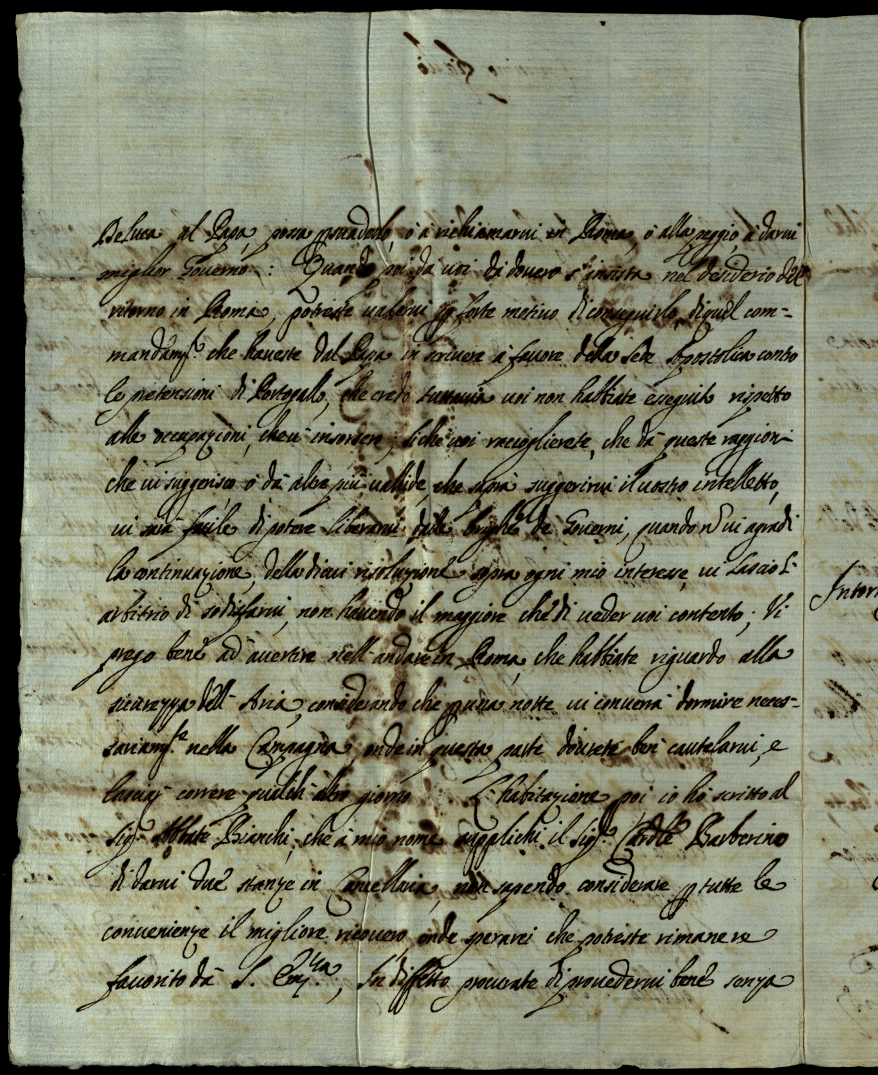 DeLuca al Papa, possa persuaderlo, ò à richiamarvi in Roma, ò alla peggio, à darvi
miglior Governo: Quando poi da voi da dovero s'insista nel desiderio del
ritorno in Roma, potreste valervi per forte motivo di conseguirlo, di quel com-
mandamto che haveste dal Papa in scrivere à favore della Sede Apostolica contro
le pretensioni di Portogallo, che credo tuttavia voi non habbiate eseguito rispetto
alle occupazioni, che vi insordero; siche voi raccoglierete, che dà queste raggioni
che vi suggerisco, ò dà altre più vallide che saprà suggerirvi il vostro intelletto,
vi sarà facile di potere liberarvi dalle brighe de Governi, quando nõ vi agradi
la continuazione, della di cui risoluzione sopra ogni mio interesse, vi lascio l'
arbitrio di sodisfarvi, non havendo il maggiore che di veder voi contento; Vi
prego bene ad' avertire nell' andare in Roma, che habbiate riguardo alla
sicurezza dell' Aria, considerando che per una notte vi converrà dormire neces-
sariamte nella Campagna, onde in questa parte dovrete ben cautelarvi, e
lasciar correre qualch' altro giorno L' habitazione poi io hò scritto al
Sigr Abbate Bianchi, che à mio nome supplichi il Sigr Cardle Barberino
di darvi due stanze in Cancellaria, non sapendo considerare per tutte le
convenienze il migliore ricovero, onde sperarei che potreste rimanere
favorito dà S. Emza, In diffetto procurate di provedervi bene senza
Intorn